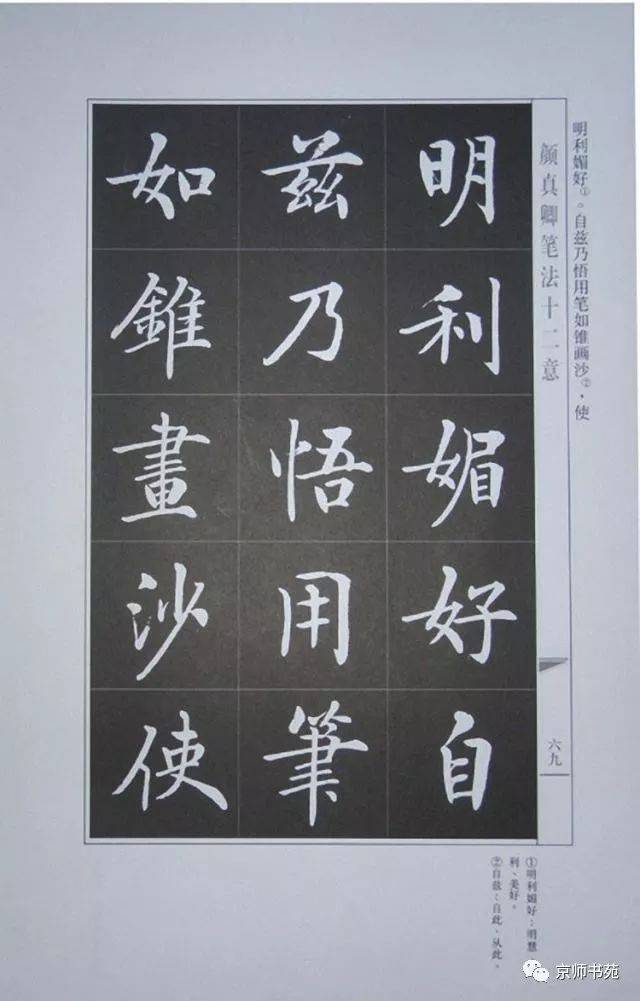 明利媚好①。自兹乃悟用笔如锥画沙②，使
颜真卿笔法十二意
明利媚好自
兹乃悟用筆
如錐畫沙使
六九
①明利媚好：明慧
利、美好。
②自兹：自此、从此。
京师书苑